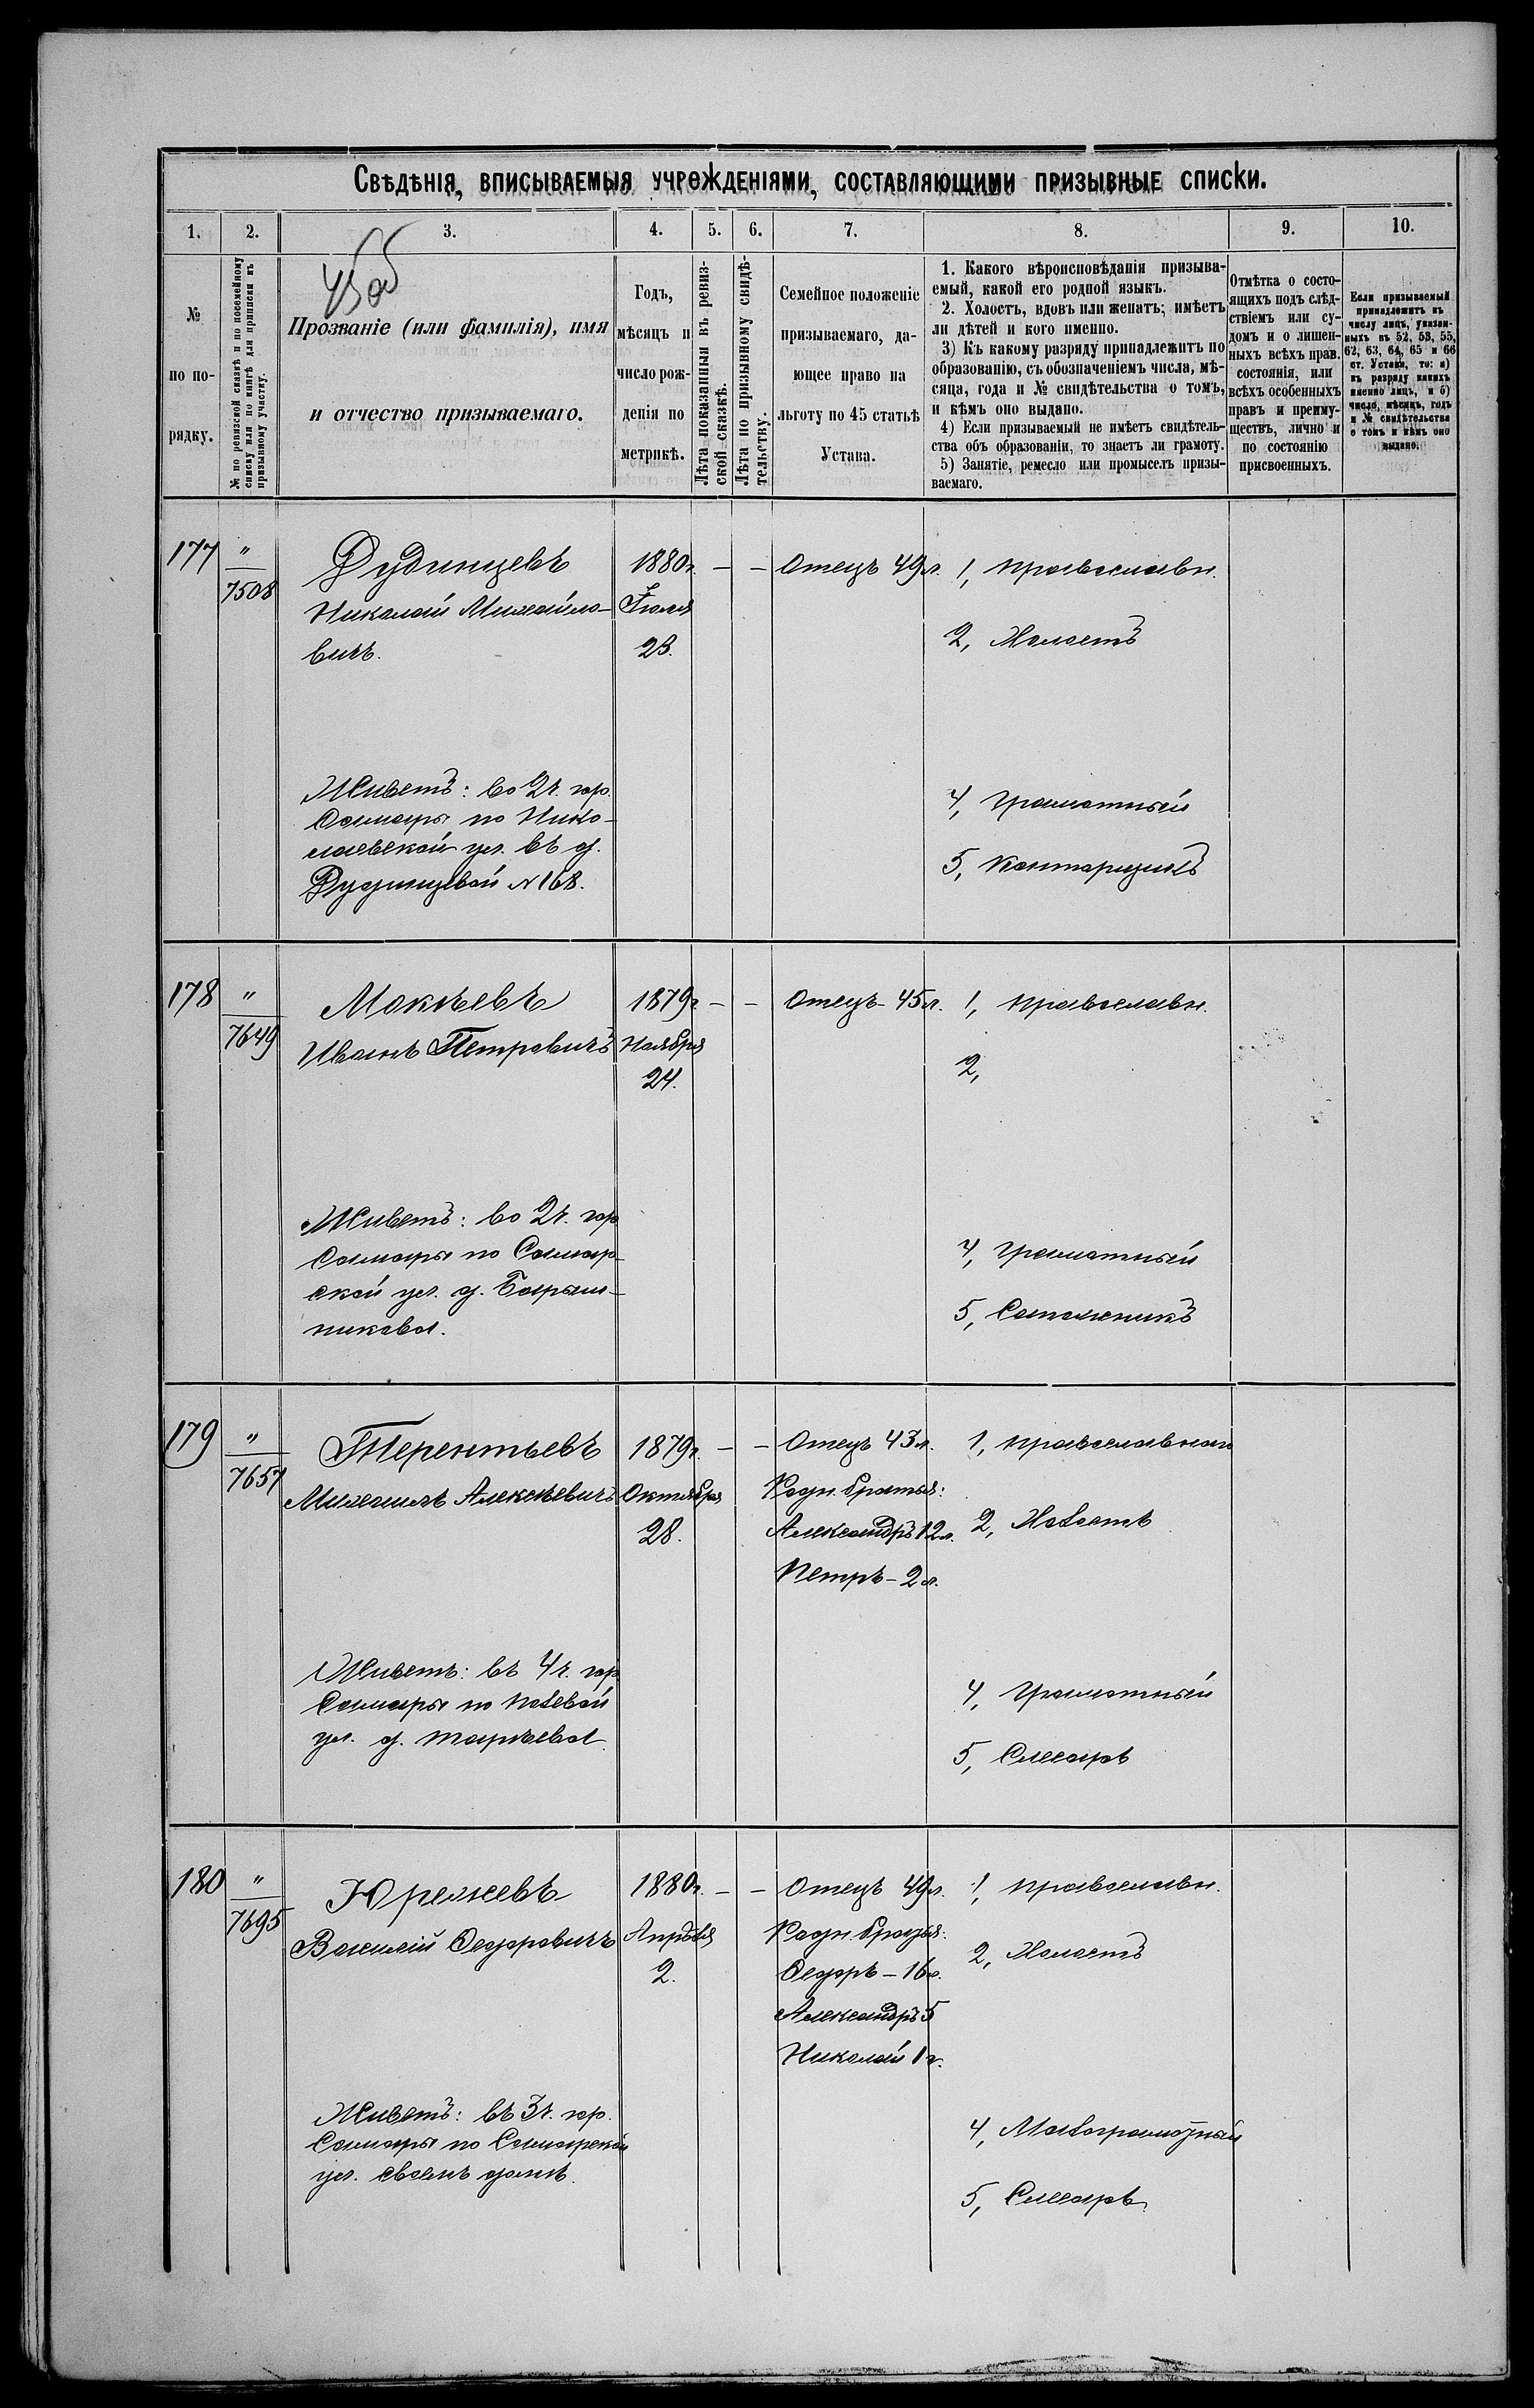 Свѣдѣнія, вписываемыя учрежденіями, составляющими призывные списки.
1. 2. 3. 4. 5. 6. 7. 8. 9. 10.
№
по по-
рядку.
№ по ревизской сказкѣ и по посемейному
списку или по книгѣ для приписки къ
призывному участку.
Прозваніе (или фамилія), имя
и отчество призываемаго.
Годъ,
мѣсяцъ и
число рож-
денія по
метрикѣ.
Лѣта показанныя въ ревиз-
ской сказкѣ.
Лѣта по призывному свидѣ-
тельству.
Семейное положеніе
призываемаго, да-
ющее право на
льготу по 45 статьѣ
Устава.
1. Какого вѣроисповѣданія призыва-
емый, какой его родной языкъ.
2. Холостъ, вдовъ или женатъ; имѣетъ
ли дѣтей и кого именно.
3) Къ какому разряду принадлежитъ по
образованію, съ обозначеніемъ числа, мѣ-
сяца, года и № свидѣтельства о томъ,
и кѣмъ оно выдано.
4) Если призываемый не имѣетъ свидѣтель-
ства объ образованіи, то знаетъ ли грамоту.
5) Занятіе, ремесло или промыселъ призы-
ваемаго.
Отмѣтка о состо-
ящихъ подъ слѣд-
ствіемъ или су-
домъ и о лишен-
ныхъ всѣхъ прав.
состоянія, или
всѣхъ особенныхъ
правъ и преиму-
ществъ, лично и
по состоянію
присвоенныхъ.
Если призываемый
принадлежитъ къ
числу лицъ, указан-
ныхъ въ 52, 53, 55,
62, 63, 64, 65 и 66
ст. Устава, то: а)
къ разряду какихъ
именно лицъ, и б)
число, мѣсяцъ, годъ
и № свидѣтельства
о томъ и кѣмъ оно
выдано.
177 " 7508
Дудинцевъ
Николай Михайло-
вичъ.
1880г.
Іюля
23.
— —
Отецъ 49л.
1, Православн.
2, Холостъ
Живетъ: во 2ч. гор.
Самары по Нико-
лаевской ул. въ д.
Дудинцевой №168.
4, Грамотный
5, Конторщикъ
178 " 7649
Мокѣевъ
Иванъ Петровичъ
1879г
Ноября
24.
— —
Отецъ - 45л.
1, Православн.
2,
Живетъ: во 2ч. гор
Самары по Самар-
ской ул. д.
4, Грамотный
5, Сапожникъ
179 " 7657
Терентьевъ
Михаилъ Алексѣевичъ
1879г.
Октября
28.
— —
Отецъ 43л.
Родн. братья:
Александръ 12л.
Петръ - 2л.
1, Православнаго
2, Холостъ
Живетъ: въ 4ч. гор
Самары по Полевой
ул. д.
4, Грамотный
5, Слесарь
180 " 7695
Юрежевъ
Василій Федоровичъ
1880г.
Апрѣля
2.
— —
Отецъ 49л.
Родн. братья:
Федоръ - 16л.
Александръ 5
Николай 1г.
1, Православн.
2, Холостъ
Живетъ: въ 3ч. гор.
Самары по Самарской
ул. своемъ домѣ.
4, Малограмотный
5, Слесарь